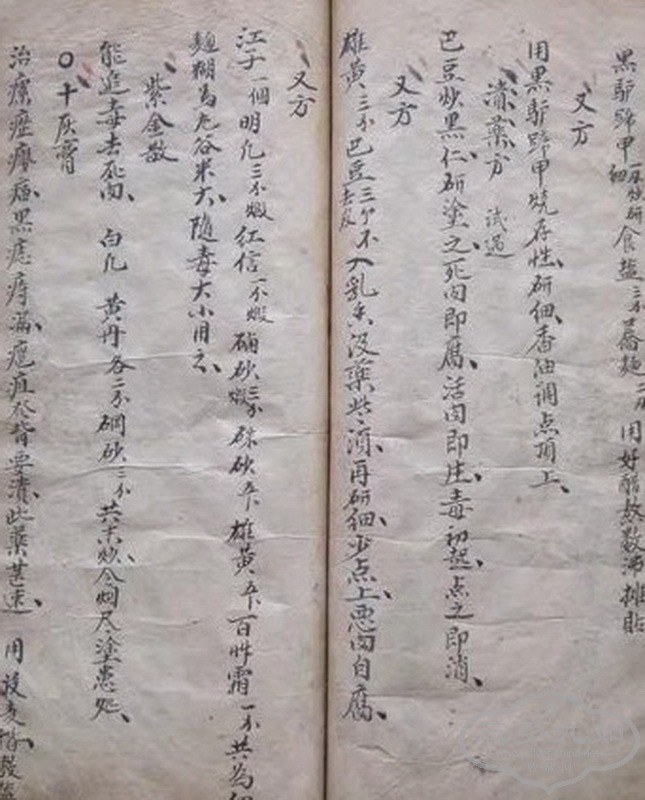 黑驴蹄甲一个炒研细食盐三分荞麺二分用好醋熬数沸摊贴
又方
用黑驴蹄甲烧存性研细香油调点顶上
溃藥方 试过
巴豆炒黑仁研塗之死肉即腐活肉即庄毒初起点之即消
又方
雄黄三分巴豆三个去皮不入乳香没藥些须再研细少点上恶肉自腐
又方
江子一個明凡三分煅红信一分煅硇砂三分煅硃砂五下雄黄五下百艸霜一分共為细
麺糊為丸谷米大随毒大小用之
紫金散
能追毒去死肉 白凡 黄丹各二分硇砂三分共末炒令烟尽塗患处
○十灰膏
治瘰癧瘿瘤黑痣痔漏疮疽發背要溃此藥甚速 用荍麦楷